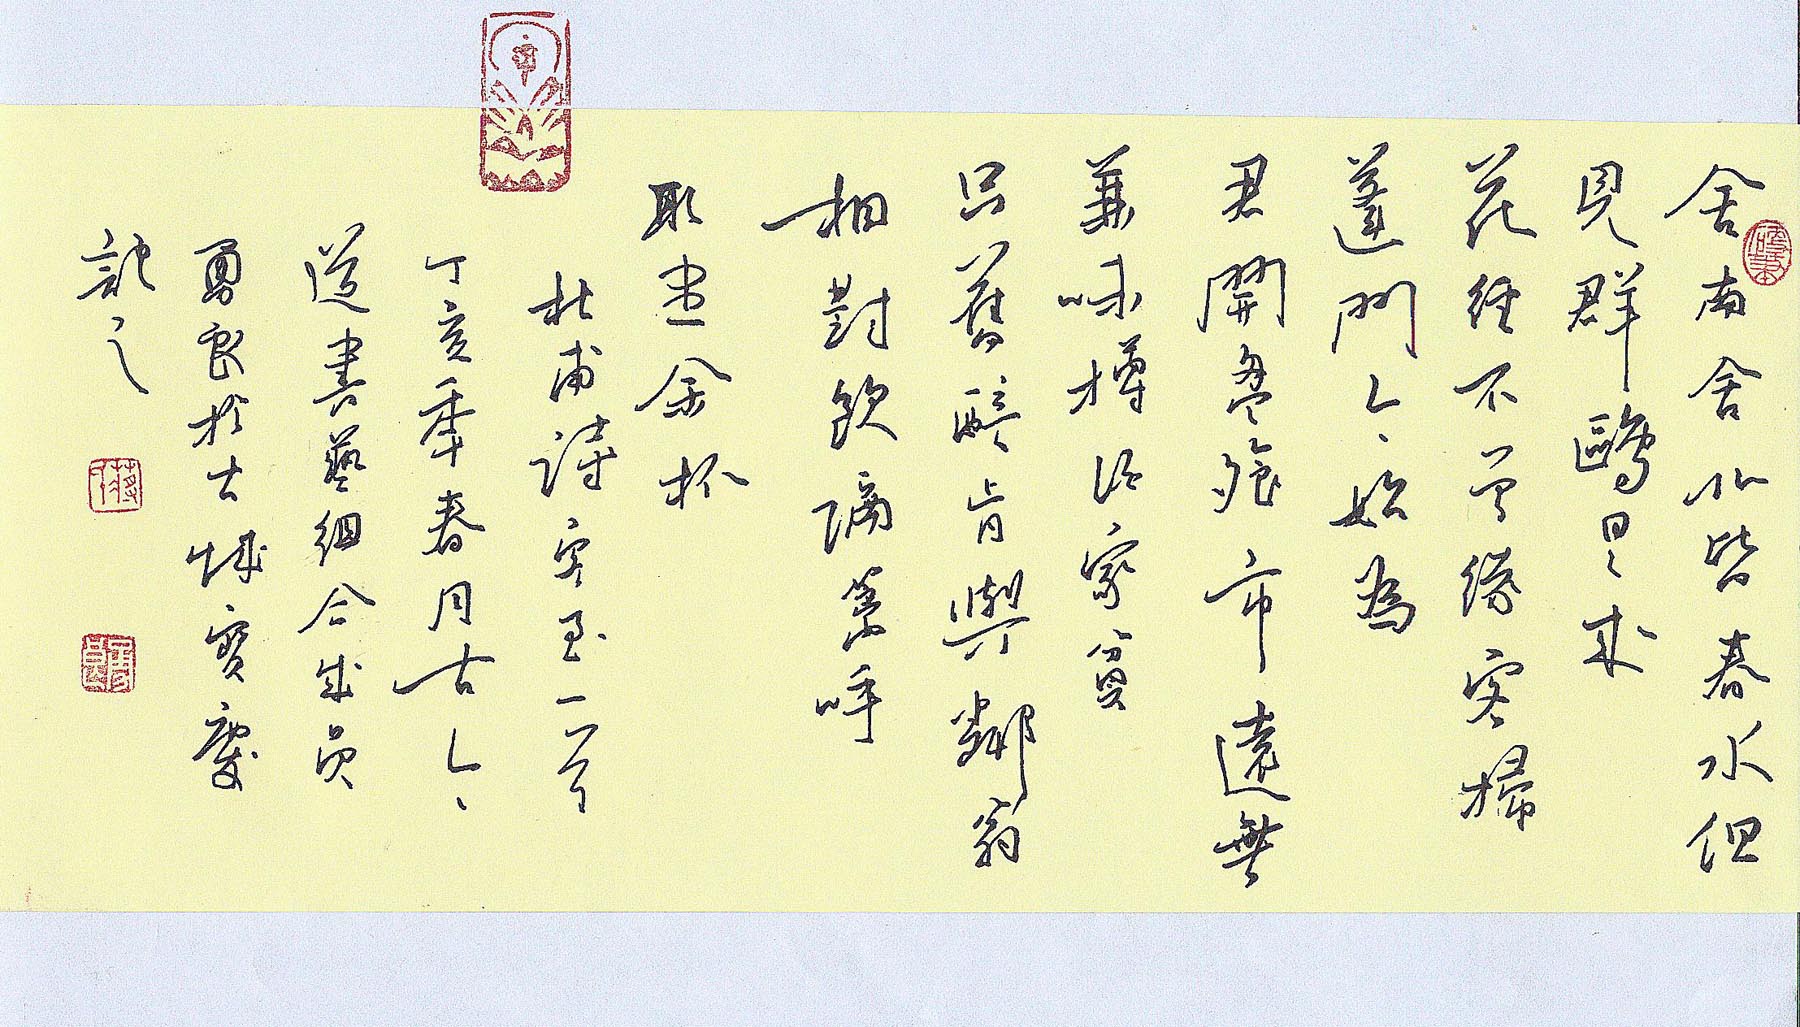 舍南舍北皆春水但
見群鷗日々來
花徑不曾緣客掃
蓬門今始為
君開盤飧市遠無
兼味樽酒家貧
只舊醅肯與鄰翁
相對飲隔籬呼
取盡余杯
杜甫詩客至一首
丁亥年春月古今
道書藝組合成員
勇良於古城寶慶
記之